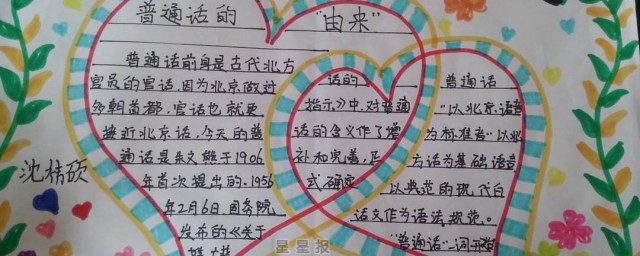 普通话的
"由来"
普通话前身是古代北方
官员的官话,因为北京做过
多朝首都,官话也就更
接近北京话,今天的普
通话是朱文熊于1906
年首次提出的.1956
年2月6日,国务院
发布的《关于
话的
指示》中,对普通
话的含义作了增
补和完善,正
式确定
普通话
"以北京语音
为标准音,以北
方话为基础语言
以典范的现代白
话文作为语法规范。
"普通话"一词开始
沈祎硕
星星报